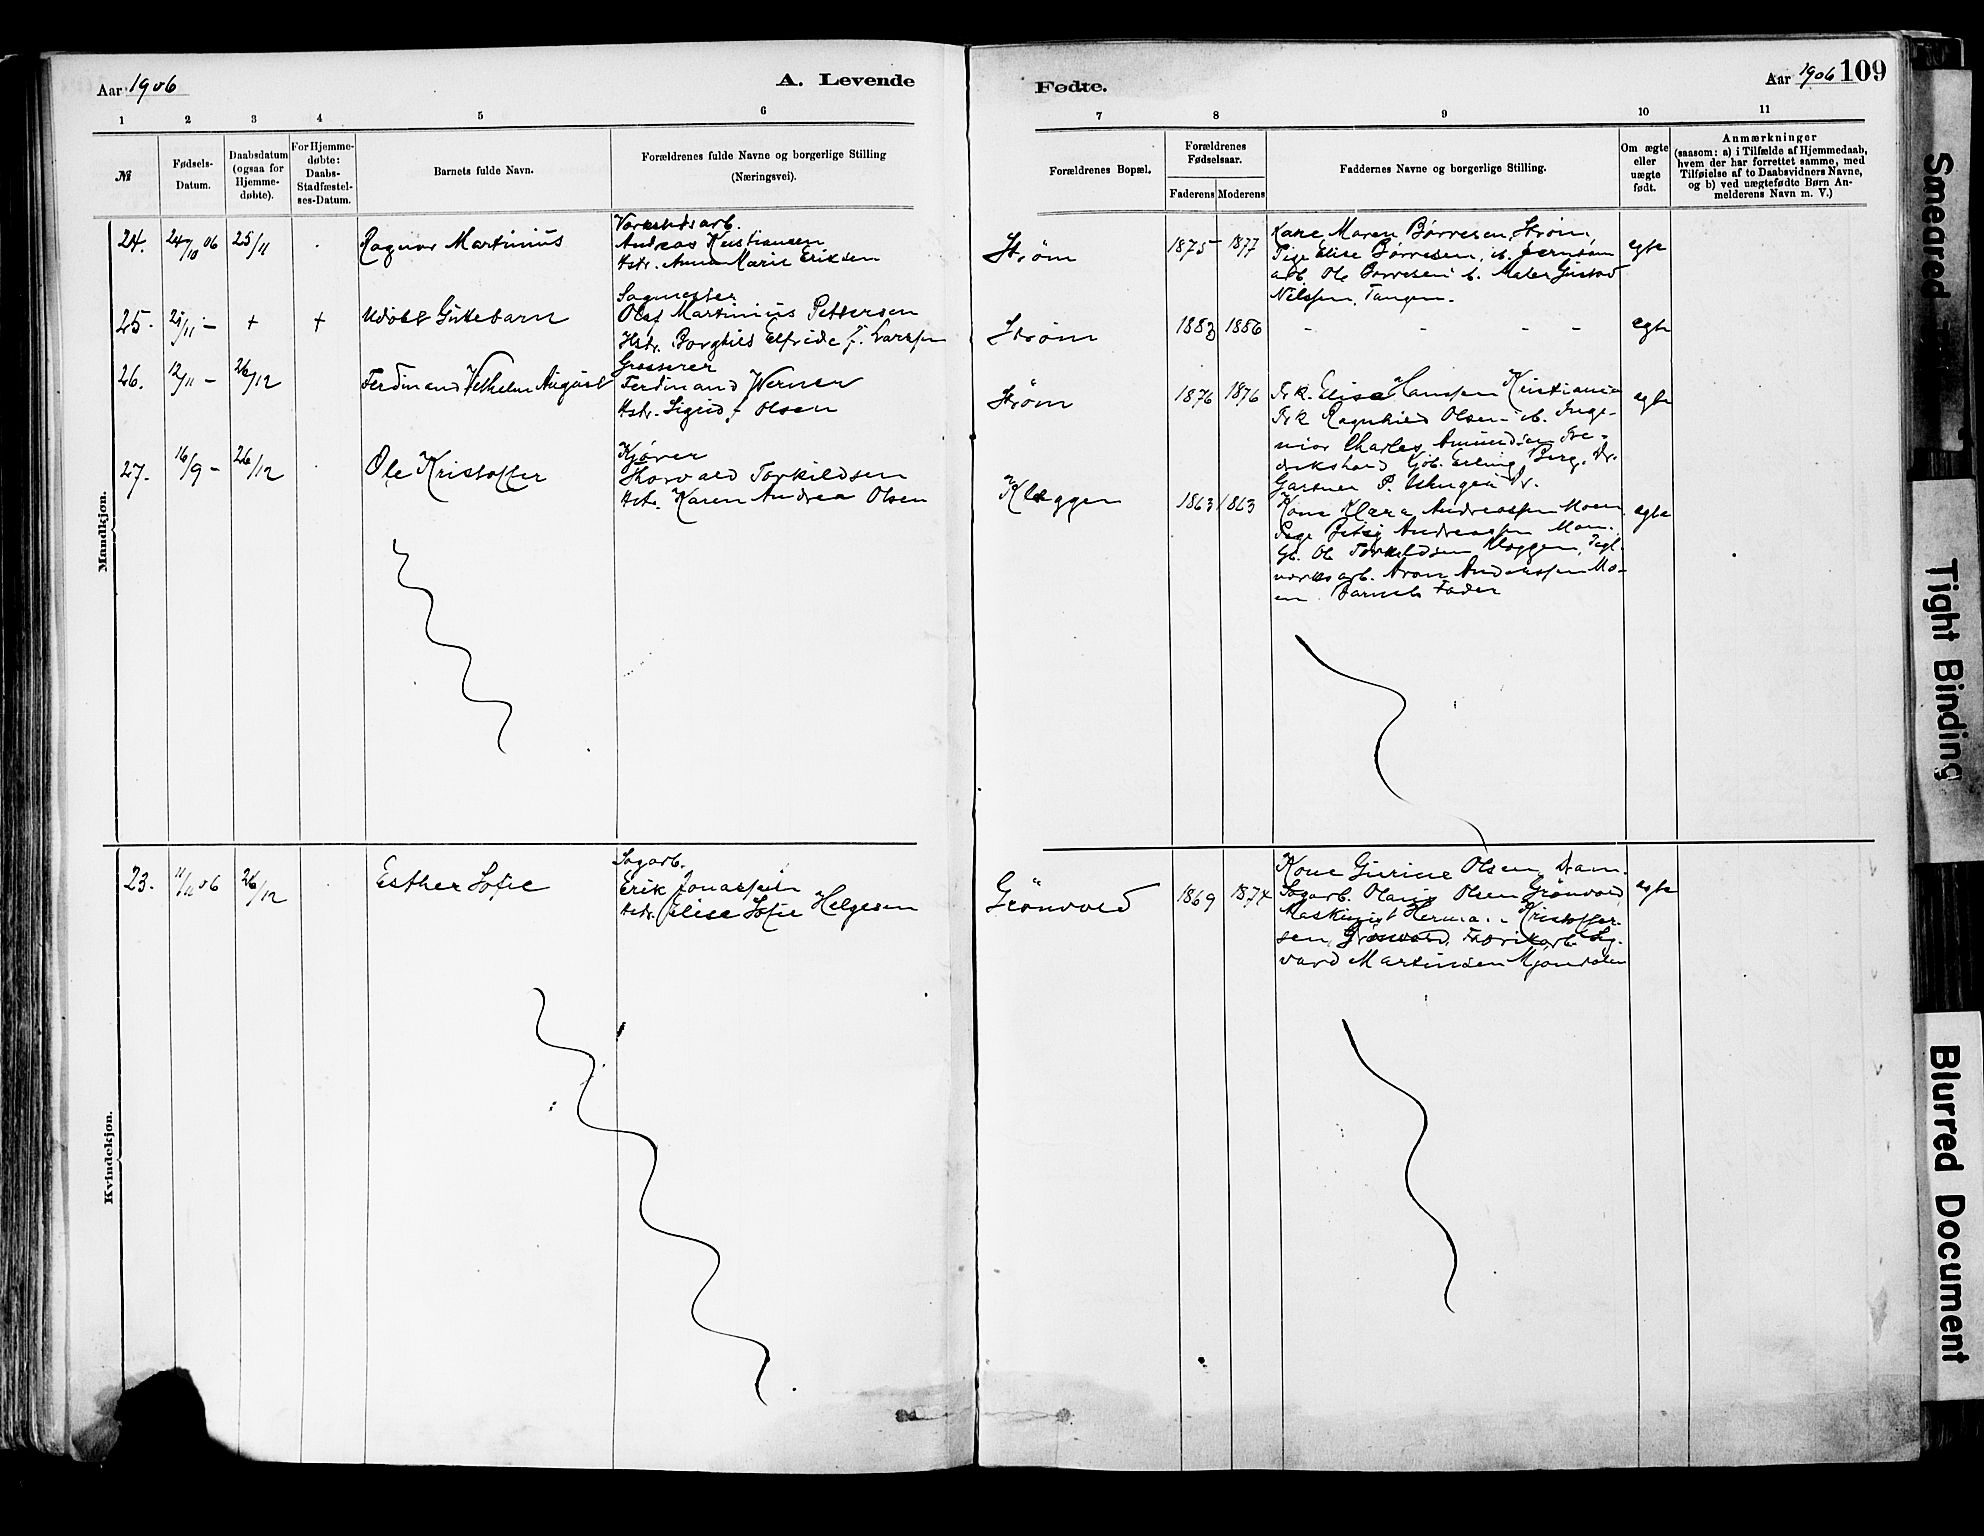 Aar 1906
A. Levende
Fødte.
Aar 1906
109
1 2 3 4 5 6 7 8 9 10 11
№
Fødsels-
Datum.
Daabsdatum
(ogsaa for
Hjemme-
døbte).
For Hjemme-
døbte:
Daabs-
Stadfæstel-
ses-Datum.
Barnets fulde Navn.
Forældrenes fulde Navne og borgerlige Stilling
(Næringsvei).
Forældrenes Bopæl.
Forældrenes
Fødselsaar.
Faderens Moderens
Faddernes Navne og borgerlige Stilling.
Om ægte
eller
uægte
født.
Anmærkninger
(saasom: a) i Tilfælde af Hjemmedaab,
hvem der har forrettet samme, med
Tilføielse af to Daabsvidners Navne,
og b) ved uægtefødte Børn An-
melderens Navn m. V.)
Mandkjøn.
24. 24/10 06 25/11
Ragnar Martinius
Andreas Kristiansen
Hstr. Anna Marie Eriksen
Strøm
1875 1877
Kone Maren Børresen, Strøm,
Pige Elise Børresen,
arb. Ole Børresen Maler Gustav
Nilssen, Tangen.
egte
25. /11 – + +
Udøbt Guttebarn
Sagmester
Olaf Martinius Pettersen
Hstr. Borghild Elfride f. Larssen
Strøm
1883 1886
- - - -
egte
26. 12/11 – 26/12
Ferdinand Vilhelm August
Grosserer
Ferdinand Werner
Hstr. Sigrid f. Olsen
Strøm
1876 1876
Frk. Elise Hanssen Kristiania
Frk Ragnhild Olsen Inge-
niør Charles Amundsen Fre-
drikshald Erling Berg. Dr.
Gartner P. Dr.
egte
27. 16/9 – 26/12
Ole Kristoffer
Kjører
Thorvald Torkildsen
Hstr. Karen Andrea Olsen
Kløggen
1863 1863
Kone Klara Andreassen Moen
Pige Betsy Andreassen Moen.
Gb. Ole Torkildsen Kløggen, Tegl-
verksarb. Aron Andersen Mo-
en. Barnets Fader
egte
Kvindekjøn.
23. 11/11 06 26/12
Esther Sofie
Sagarb.
Erik Jonassen
Hstr. Elise Sofie Helgesen
Grønvold
1869 1874
Kone Gurine Olsen Dam.
Sagarb. Olaus Olsen Grønvold
Maskinist Herman Kristoffer-
sen, Grønvold, Fabrikarb. Sg-
vard Martinsen Mjøndalen
egte
Smeared
Tight Binding
Blurred Document